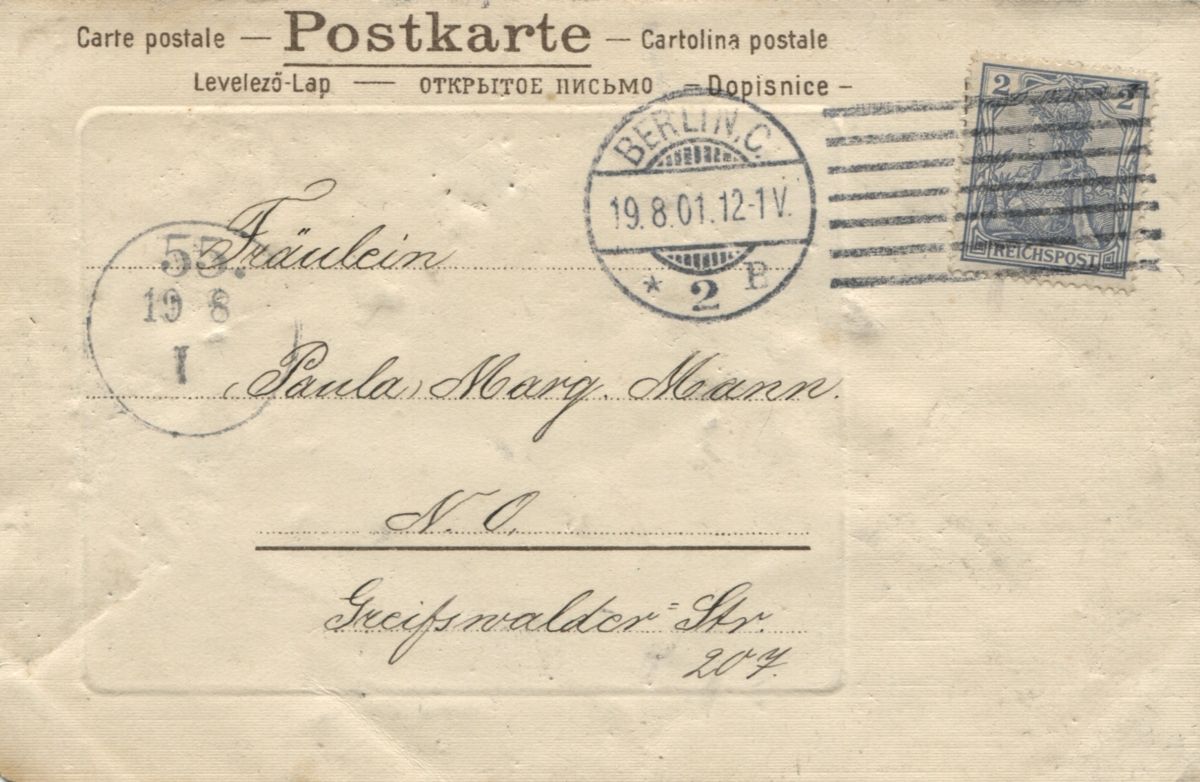 Carte postale — Postkarte — Cartolina postale
Levelező-Lap — ОТКРЫТОЕ ПИСЬМО — Dopisnice —
2 2
REICHSPOST
BERLIN. C.
19.8.01.12-1V.
* 2 B
55.
19 8
I
Fräulein
Paula Marg. Mann.
N. O.
Greifswalder=Str.
207.